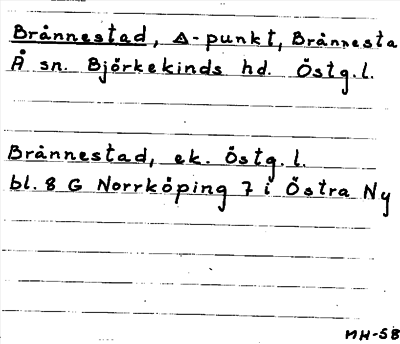 Brånnestad, △-punkt, Brånnesta
Å sn. Björkekinds hd. Östg.l.
Brånnestad, ek. Östg.l.
bl. 8 G Norrköping 7 i Östra Ny
MH-58